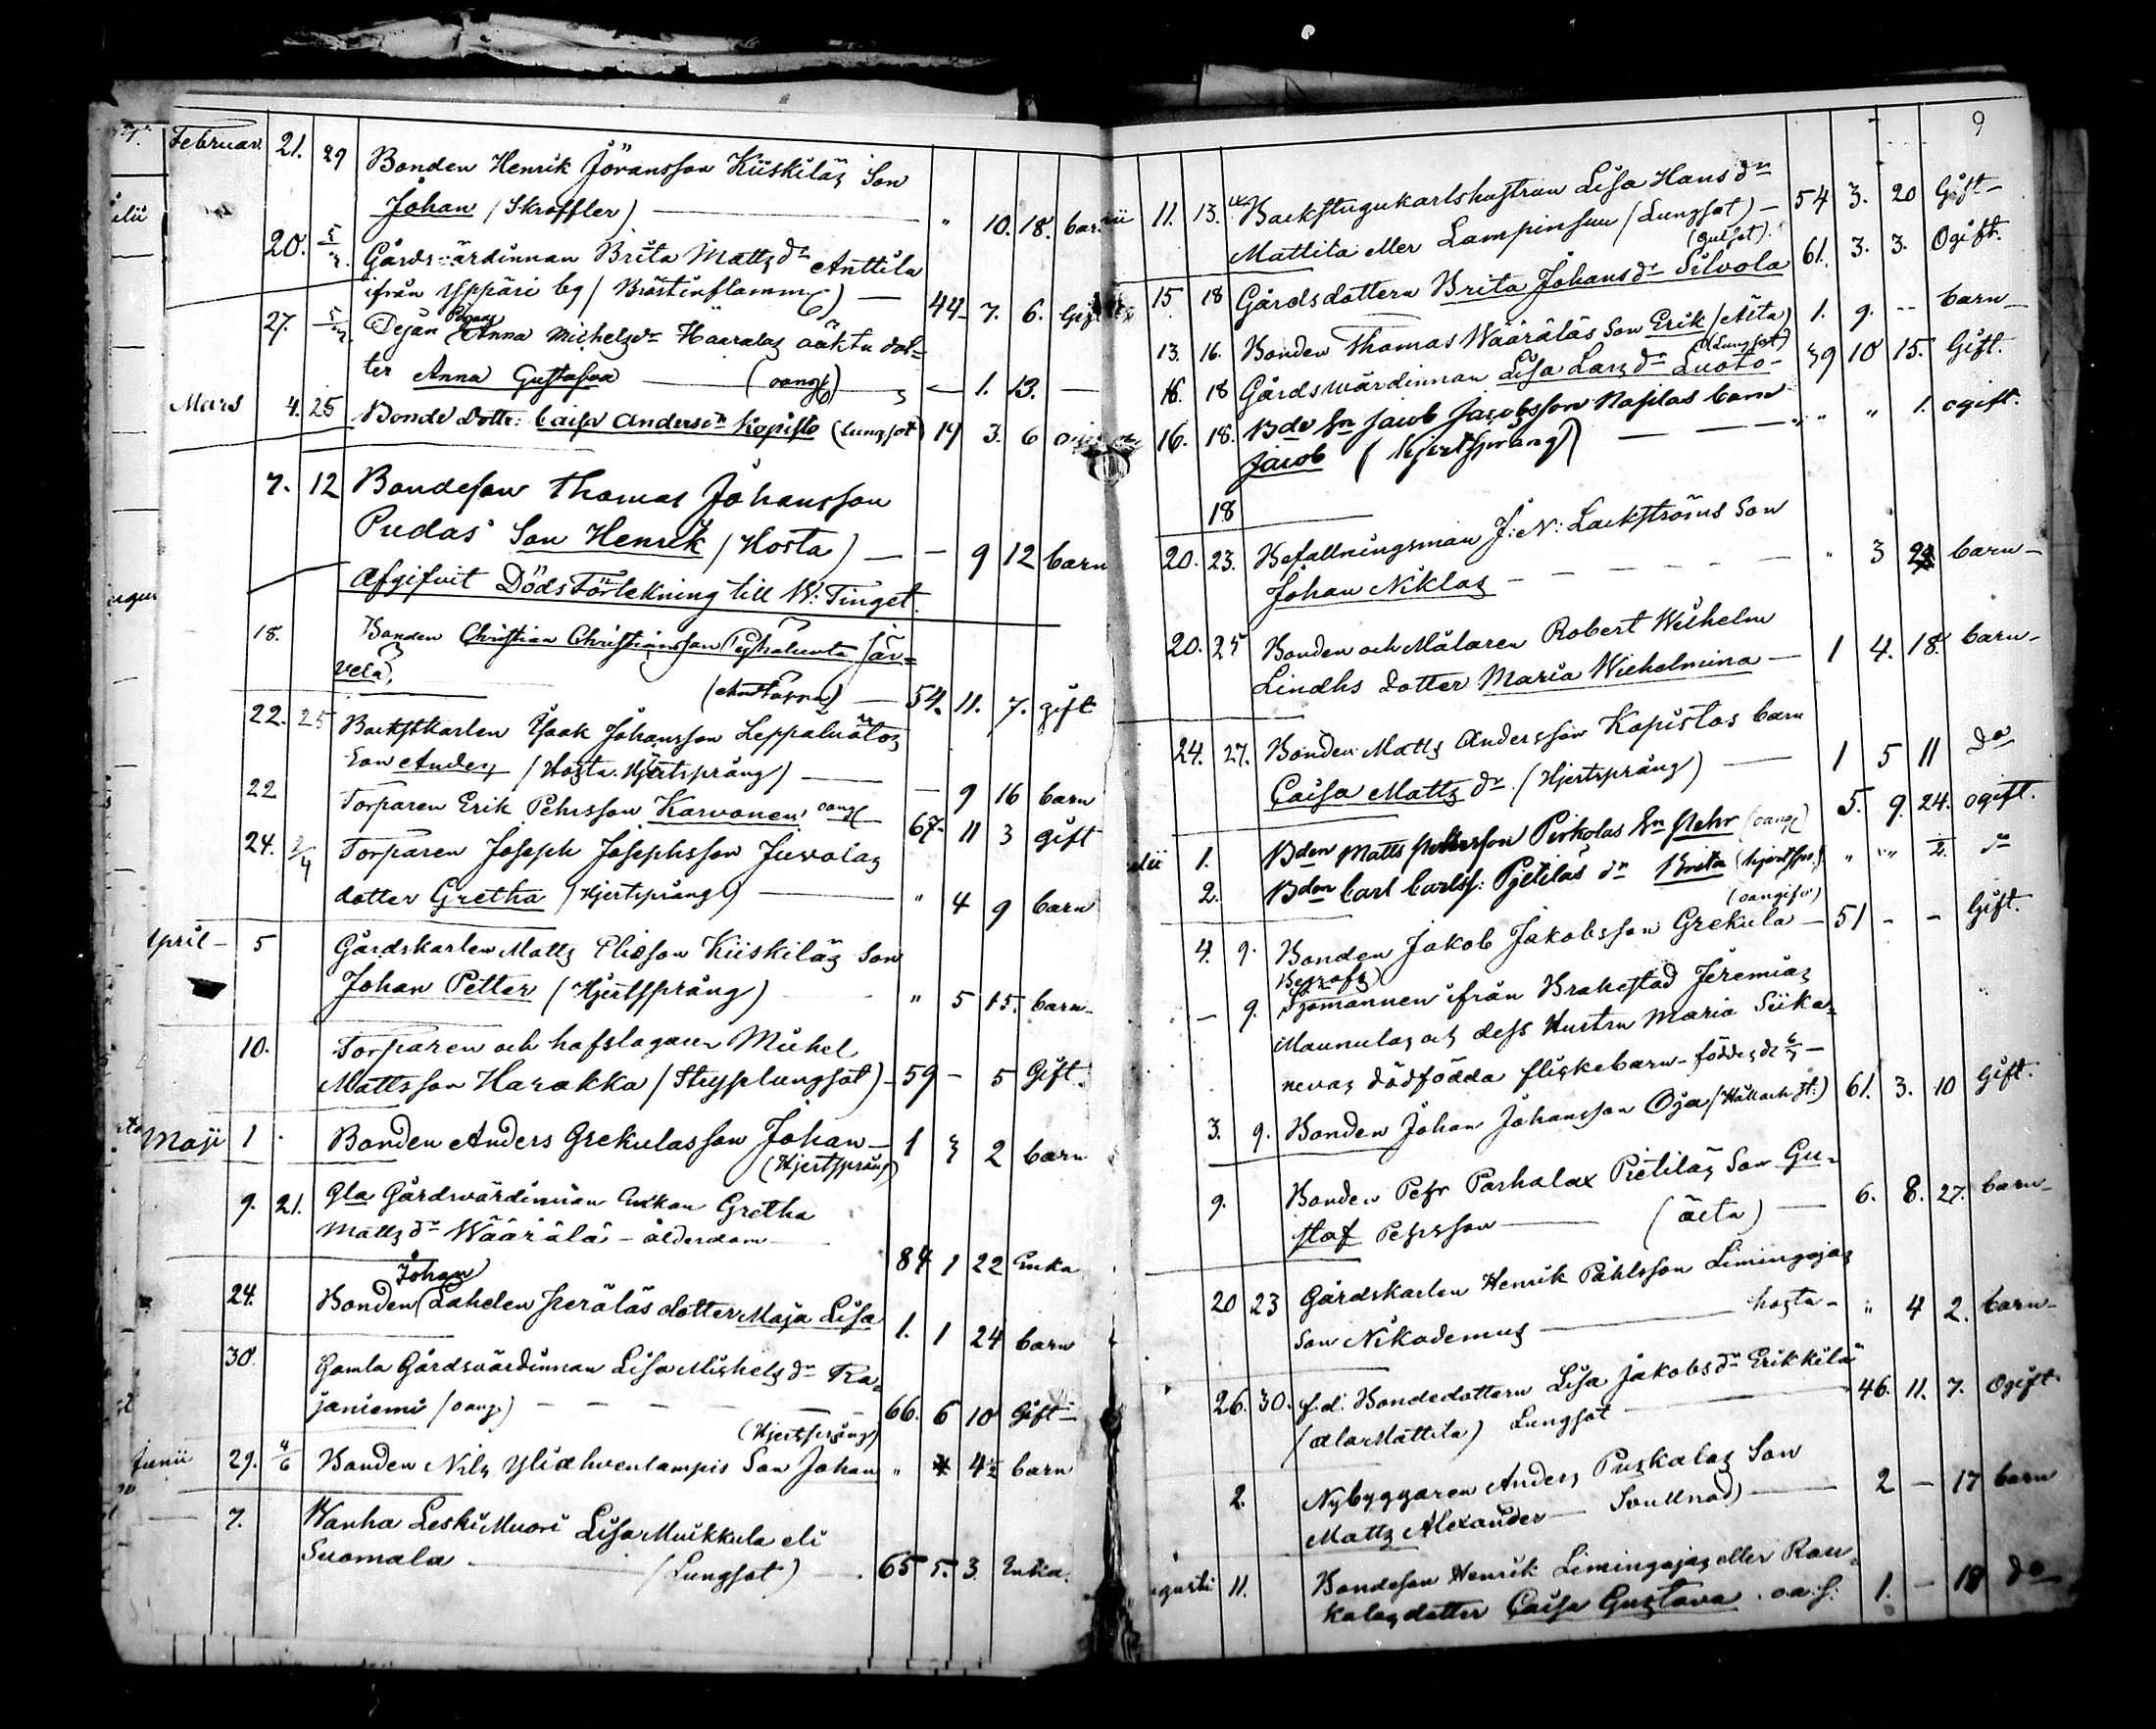 Februar. 21. 29 Bonden Henrik Jöransson Kiiskiläs Son
Johan (Skroffler) — " 10. 18. bar
20. 5/3. Gårdsvärdinnan Brita Matts dr Anttila
ifrån Yppäri by (Bröstinflamm) — 44 7. 6. Gift
27. 5/3 Pigans
Dejan Anna Michelsdr Haaralas oäkta dot-
ter Anna Gustafva — (oang) — 1. 13. —
Mars 4. 25 Bonde Dottr: Caisa Andersdr Kopisto (Lungsot) 19 3. 6
7. 12 Bondeson Thomas Johansson
Pudas Son Henrik (Hosta) — — 9 12 barn
Afgifvit Dödsförtekning till W: Tinget.
18. Bonden Christian Christiansson Pyhäluoto Jär-
velä,
(Andtäppa) — 54. 11. 7. gift
22. 25 Backstkarlen Isaak Johansson Leppaluotos
Son Anders (Hosta. Hjertsprång) — — 9 16 barn
22 Torparen Erik Pehrsson Karvonen oang 67. 11 3 gift
24. 2/4 Torparen Joseph Josephsson Juvolas
dotter Gretha (Hjertsprång) — " 4 9 barn
April — 5 Gårdskarlen Matts Eliasson Kiiskiläs Son
Johan Petter (Hjertsprång) " 5 15. barn
10. Torparen och hofslagaren Mickel
Mattsson Harakka (Stryplungsot) — 59 — 5 Gift.
Maji 1 Bonden Anders Grekulas son Johan — 1 3 2 barn
(Hjertsprång)
9. 21. Gla Gårdwärdinnan Enkan Gretha
Matts dr Wäärälä — ålderdom
84 1 22 Enka
Johan
24. Bonden Lahden Peräläs dotter Maja Lisa
1. 1 24 barn
30. Gamla Gårdsvärdinnan Lisa Michels dr Ra-
janiemi (oang.) — — — 66. 6 10 Gift
(Hjertsprång)
Junii 29. 4/6 Bonden Nils Yliahvenlampis Son Johan " 4 1/2 barn
7. Wanha Leski Muori Lisa Muikkula eli
Suomala — (Lungsot) — 65 5. 3 Enka.
9
11. 13. Backstugukarlshustrun Lisa Hans dr
Mattila eller Lampinsuu (Lungsot) — 54 3. 20 Gift —
(Gulsot)
15 18 Gårdsdottern Brita Johans dr Silvola 61. 3. 3. Ogift.
13. 16. Bonden Thomas Wääräläs Son Erik (Äita) 1. 9. -- barn —
(Lungsot)
16. 18 Gårdswärdinnan Lisa Lars dr Luoto — 39 10 15. Gift.
16. 18. Bde Sn Jacob Jacobsson Nasilas barn " " 1. ogift.
Jacob (Hjertsprång) — — —
18
20. 23. Befallningsman J: N: Lackströms Son
Johan Niklas — — — " 3 barn —
20. 25 Bonden och Målaren Robert Wilhelm
Lindhs dotter Maria Wilhelmina — 1 4. 18. barn —
24. 27. Bonden Matts Andersson Kopistos barn
Caisa Matts dr. (Hjertsprång) — 1 5 11 do
1. Bden Matts Pehrsson Pirkolas Sn Pehr (oang) 5. 9. 24. ogift.
2. Bden Carl Carlss: Pjetiläs dr Brita (hjertspr:) " " 1/2. dr
(oangifv)
4. 9. Bonden Jakob Jakobsson Grekula — 51 — — Gift.
Begrafs)
— 9. Sjömannen ifrån Brahestad Jeremias
Maunulas och dess Hustru Maria Siika-
nevas dödfödda flickebarn — föddes d 6/7 —
3. 9. Bonden Johan Johansson Oja (Håll och st:) 61. 3. 10 Gift.
9. Bonden Pehr Parhalax Pietiläs Son Gu-
staf Pehrsson — (äita) — 6. 8. 27. barn —
20 23 Gårdskarlen Henrik Påhlsson Limingojas
Son Nikodemus — hosta — " 4 2. barn —
26. 30. f.d. Bondedottern Lisa Jakobs dr Erikkilä
(ala Mattila) Lungsot — 46. 11. 7. Ogift
2. Nybyggaren Anders Puskalas Son
Matts Alexander — Svullnad) — 2 — 17 barn
11. Bondeson Henrik Limingojas eller Rau-
kalas dotter Caisa Gustava . oa.g. 1. — 18 do